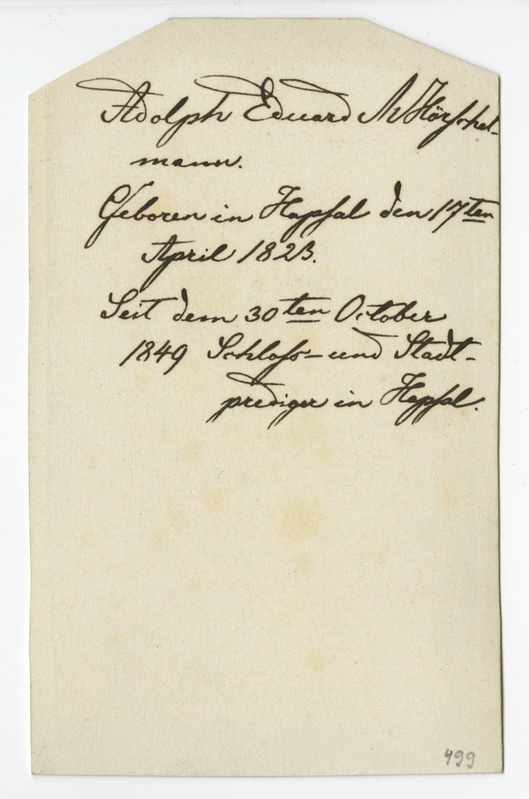 Adolph Eduard M Hörschel-
mann.
Geboren in Hapsal den 17ten
April 1823.
Seit dem 30ten October
1849 Schloss- und Stadt-
prediger in Hapsal.
499